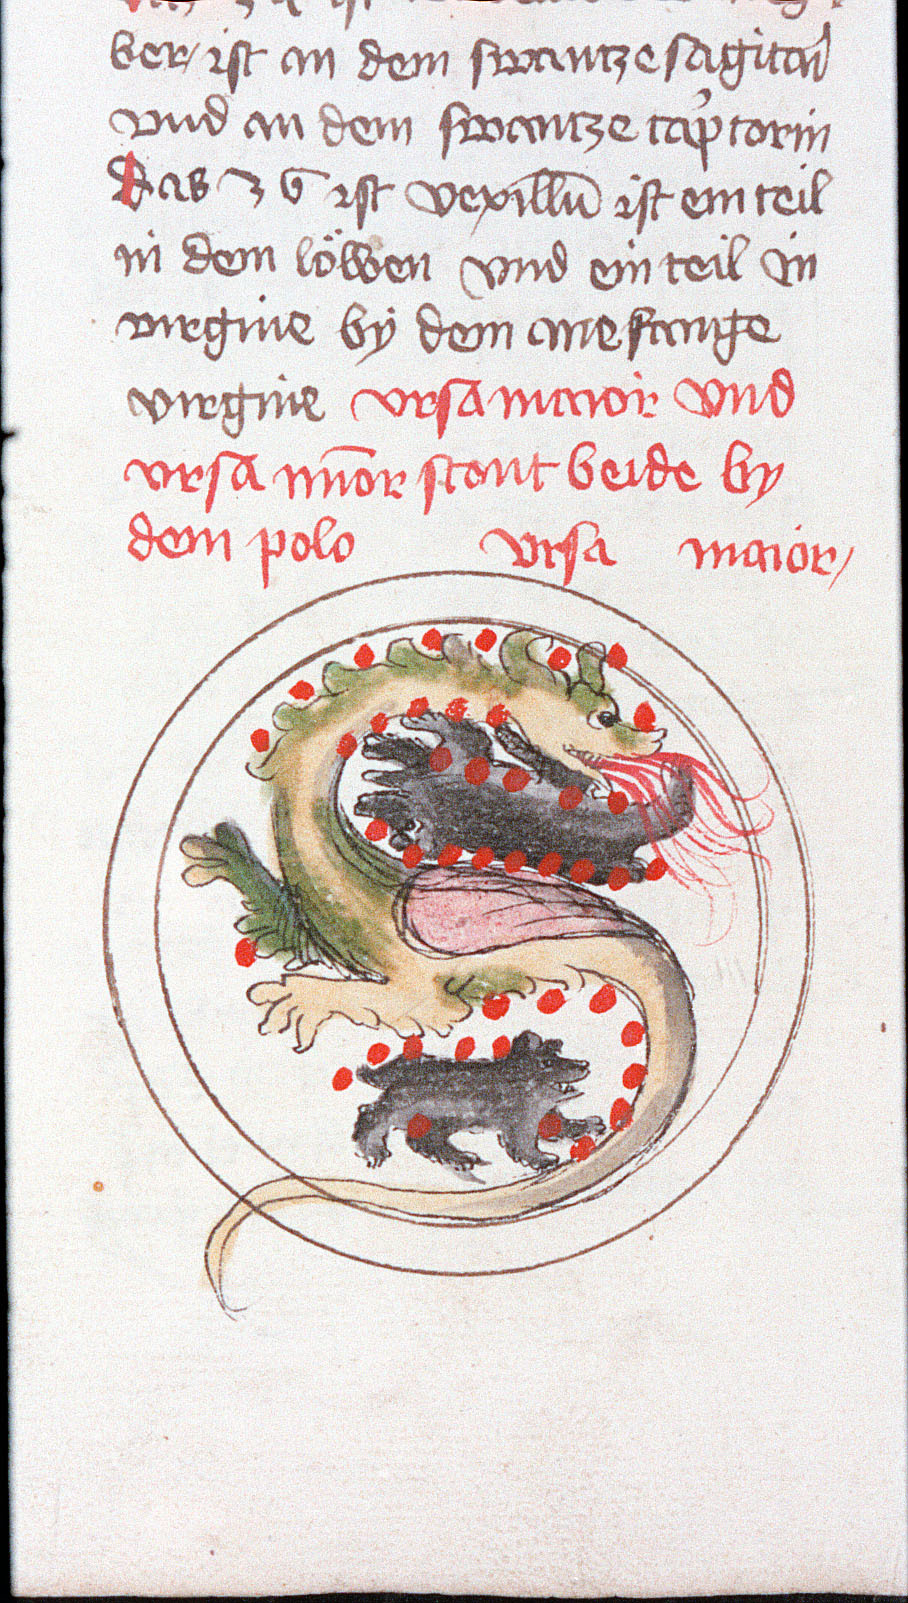 ber / ist an dem swantze sagitarij
vnd an dem swantze cap̉ corin
Das 36 ist vexillu̅ ist ein teil
in dem löwen vnd ein teil in
virgine bÿ dem anefange
virgine vrsa maior vnd
vrsa mi̅or stont beide by
dem polo vrsa maior /